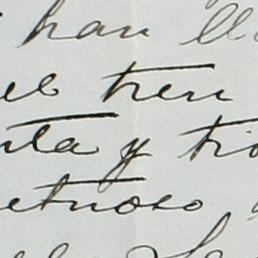 han ll
el tren
nta y tri
etuoso